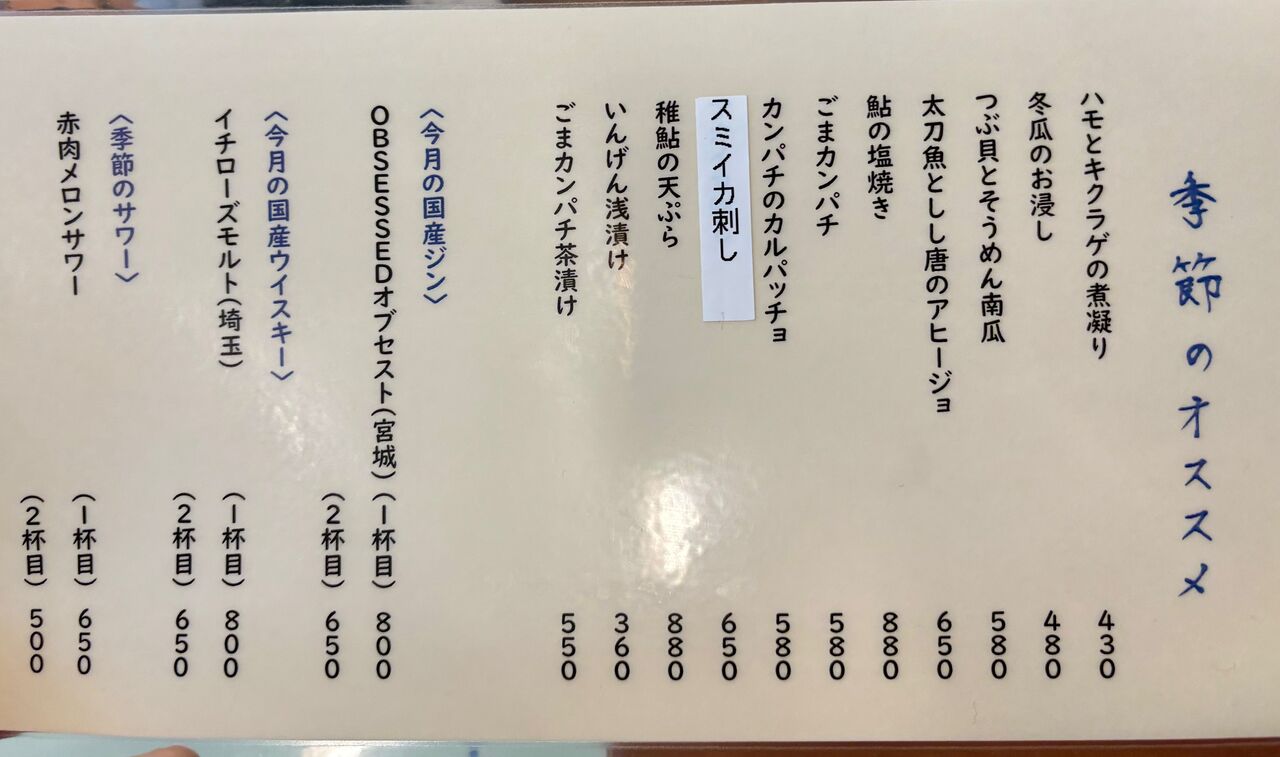 季節のオススメ
ハモとキクラゲの煮凝り 430
冬瓜のお浸し 480
つぶ貝とそうめん南瓜 580
太刀魚としし唐のアヒージョ 650
鮎の塩焼き 880
ごまカンパチ 580
カンパチのカルパッチョ 580
スミイカ刺し 650
稚鮎の天ぷら 880
いんげん浅漬け 360
ごまカンパチ茶漬け 550
〈今月の国産ジン〉
OBSESSEDオブセスト(宮城)(1杯目) 800
(2杯目) 650
〈今月の国産ウイスキー〉
イチローズモルト(埼玉) (1杯目) 800
(2杯目) 650
〈季節のサワー〉
赤肉メロンサワー (1杯目) 650
(2杯目) 500